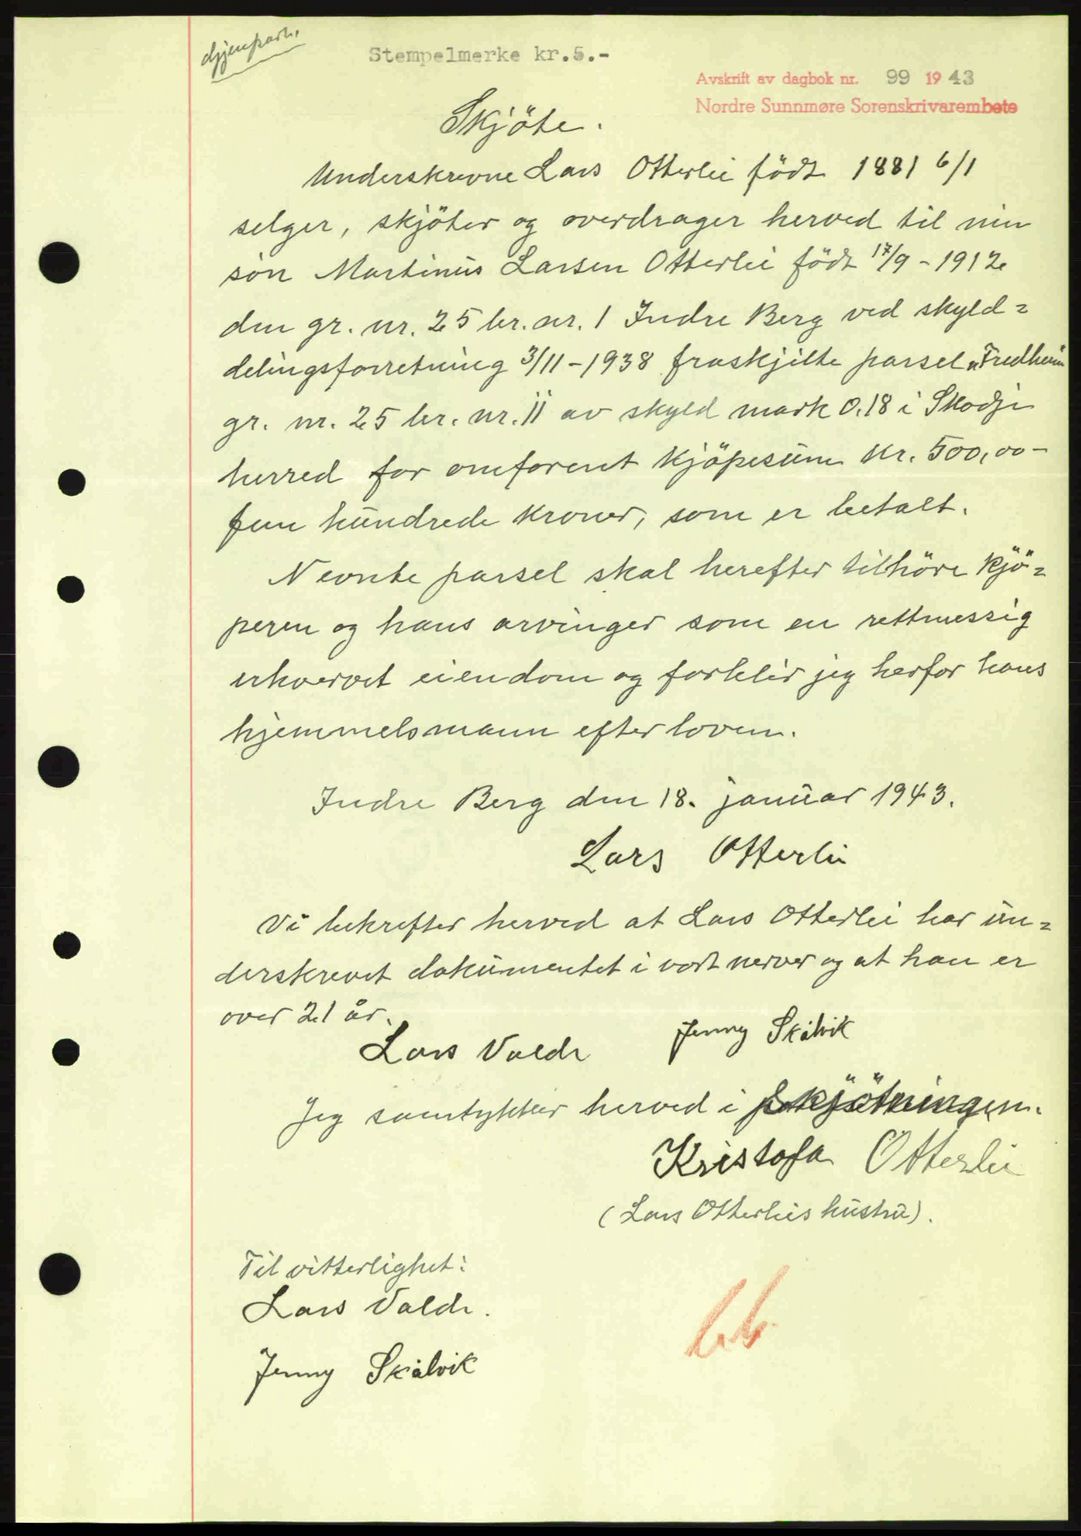 Gjenpart.
Stempelmerke kr.5.-
Avskrift av dagbok nr. 99 1943
Nordre Sunnmøre Sorenskrivarembete
Skjöte.
Underskrevne Lars Otterlei født 1881 6/1
selger, skjöter og overdrager herved til min
sön Martinus Larsen Otterlei född 17/9 - 1912
den gr. nr. 25 br. nr. 1 Indre Berg ved skyld=
delingsforretning 3/11 - 1938 fraskjilte parsel „Fredheim
gr. nr. 25 br. nr. 11 av skyld mark 0.18 i Skodje
herred for omforent kjöpesum kr. 500,00 -
fem hundrede kroner, som er betalt.
Nevnte parsel skal herefter tilhöre kjö=
peren og hans arvinger som en rettmessig
erhvervet eiendom og forblir jeg herfor hans
hjemmelsmann efter loven.
Indre Berg den 18. januar 1943.
Lars Otterlei
Vi bekrefter herved at Lars Otterlei har un=
derskrevet dokumentet i vort nerver og at han er
over 21 år.
Lars Valde Jenny Skålvik
Jeg samtykker herved i skjötningen.
Kristofa Otterlei
(Lars Otterleis hustru).
Til vitterlighet:
Lars Valde.
Jenny Skålvik